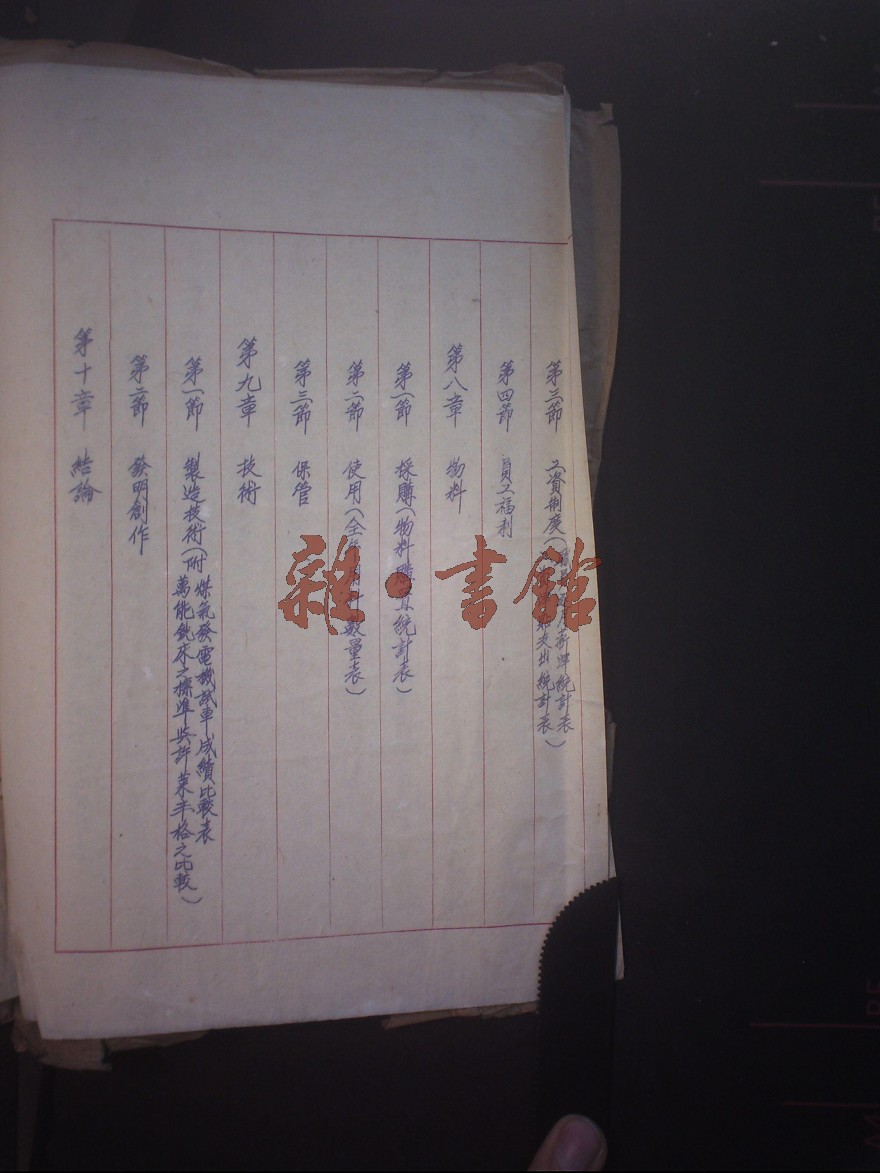 第三節 工資制度(薪津統計表
支出統計表)
第四節 員工福利
第八章 物料
第一節 採購(物料購買統計表)
第二節 使用(全年數量表)
第三節 保管
第九章 技術
第一節 製造技術(附 煤氣發電機試車成績比較表
萬能銑床之標準與許萊辛格之比較)
第二節 發明創作
第十章 結論
雜·書館